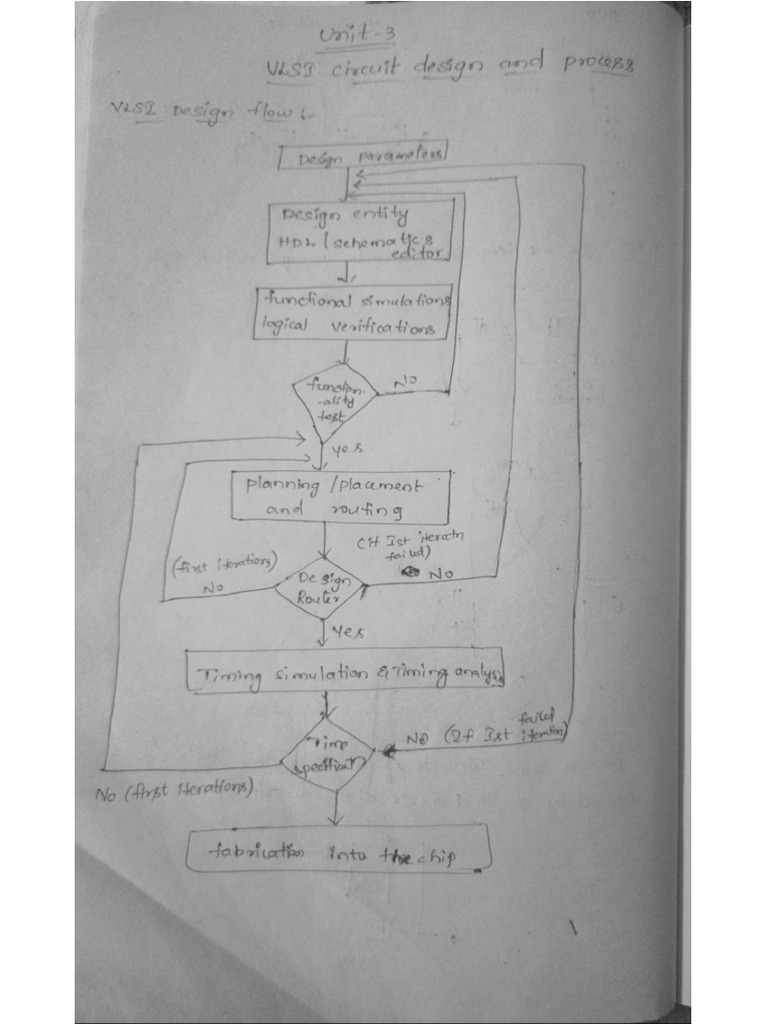 Unit-3
VLSI circuit design and process
VLSI Design flow :-
Design parameters
Design entity
HDL / schematics
editor
functional simulations
logical verifications
function
-ality
test
No
yes
planning / placement
and routing
(first iterations)
No
(if Ist iteratn
failed)
No
Design
Router
Yes
Timing simulation & Timing analysis
Time
specificatn
No (If Ist failed
iteration)
No (first iterations)
fabrication into the chip